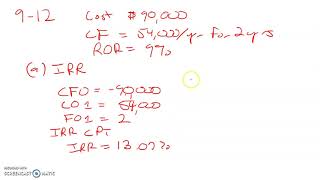 9-12 Cost $90,000
CF = 54,000/yr for 2 yrs
ROR = 9%
(a) IRR
CF0 = -90,000
C01 = 54,000
F01 = 2
IRR CPT
IRR = 13.07%
RECORDED WITH
SCREENCAST-O-MATIC